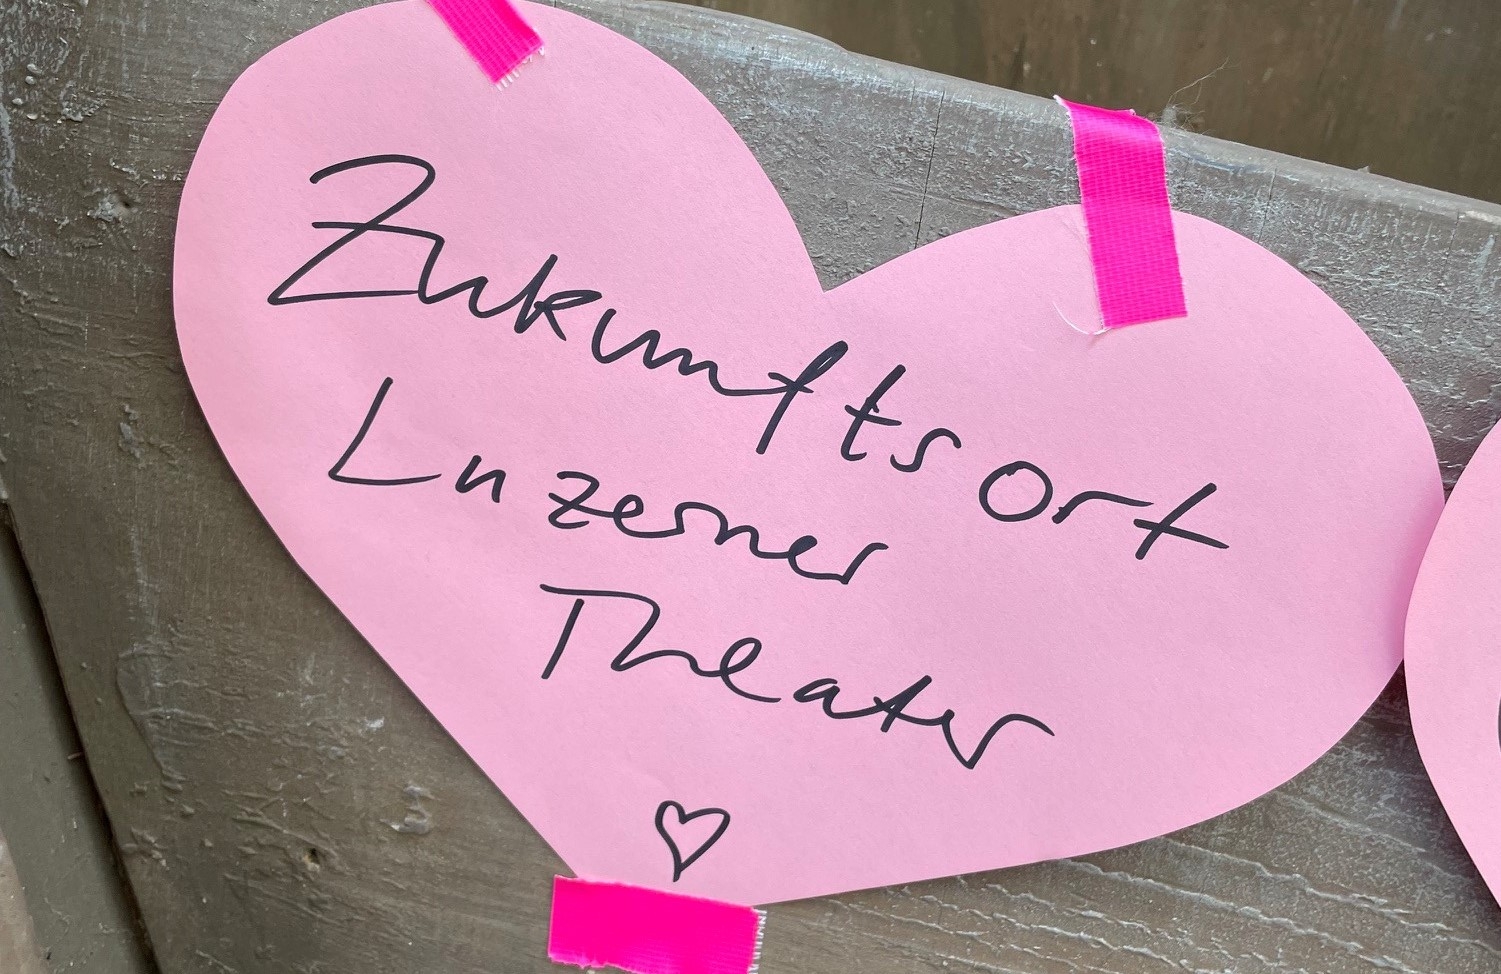 Zukunftsort
Luzerner
Theater
♡